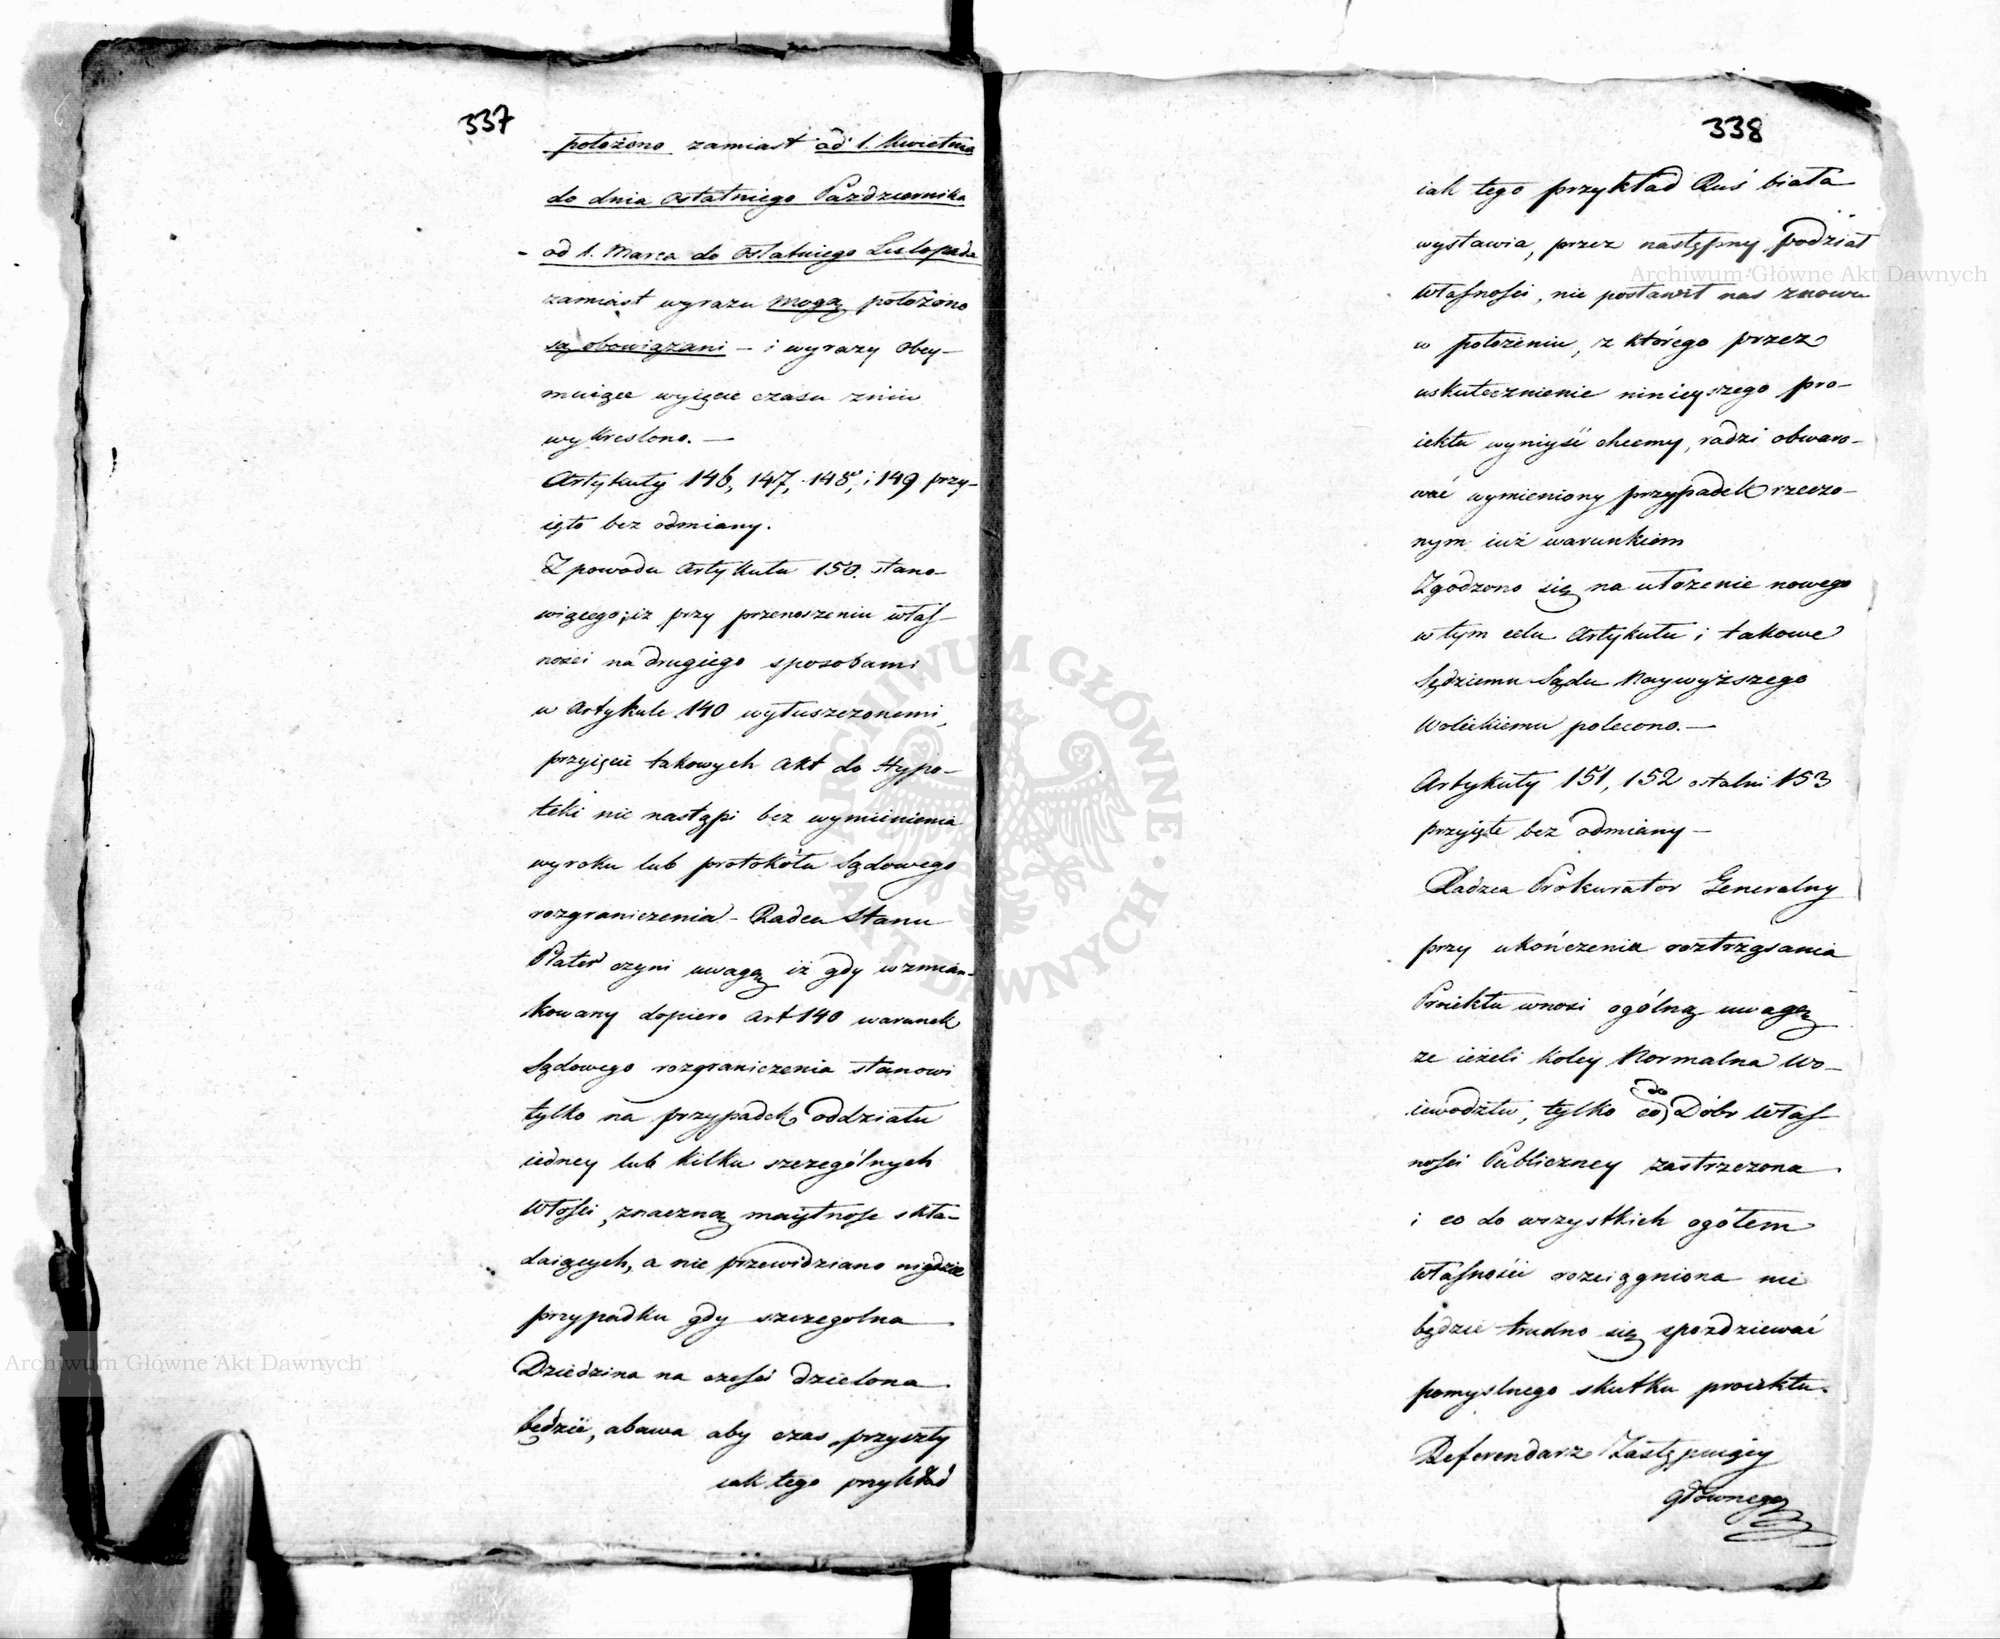 337
położono zamiast od 1. Kwietnia
do dnia ostatniego Pazdziernika
- od 1. Marca do ostatniego Listopada
zamiast wyrazu mogą położono
są obowiązani – i wyrazy obey-
muiące wyięcie czasu żniw
wykreslono. —
Artykuły 146, 147, 148, i 149 przy-
ięto bez odmiany.
Z powodu Artykułu 150. stano-
wiącego; iż przy przenoszeniu włas-
ności na drugiego sposobami
w Artykule 140 wyłuszczonemi,
przyięcie takowych Akt do Hypo-
teki nie nastąpi bez wymienienia
wyroku lub protokółu Sądowego
rozgraniczenia - Radca Stanu
Plater czyni uwagę iż gdy wzmian-
kowany dopiero Art 140 warunek
Sądowego rozgraniczenia stanowi
tylko na przypadek oddziału
iedney lub kilku szczególnych
Włości, znaczną maiętność skła-
daiących, a nie przewidziano nigdzie
przypadku gdy szczegolna
Dziedzina na części dzielona
będzie, abawa aby czas przyszły
iak tego przykład
338
iak tego przykład Ruś biała
wystawia, przez następny podział
Własności, nie postawił nas znowu
w położeniu, z którego przez
uskutecznienie ninieyszego pro-
iektu wyniyść chcemy, radzi obwaro-
wać wymieniony przypadek rzeczo-
nym iuż warunkiem
Zgodzono się na ułożenie nowego
w tym celu Artykułu i takowe
Sędziemu Sądu Naywyższego
Wolickiemu polecono. —
Artykuły 151, 152 ostatni 153
przyięte bez odmiany —
Radzca Prokurator Generalny
przy ukończenia roztrząsania
Proiektu wnosi ogólną uwagę
ze ieżeli koley Normalna Wo-
iewodztw, tylko co do Dóbr włas-
ności Publiczney zastrzeżona
i co do wszystkich ogółem
własności rozciągniona nie
będzie trudno się spozdziewać
pomyslnego skutku proiektu.
Referendarz Zastępuiący
Głównego
Archiwum Główne Akt Dawnych
Archiwum Główne Akt Dawnych
ARCHIWUM GŁÓWNE AKT DAWNYCH